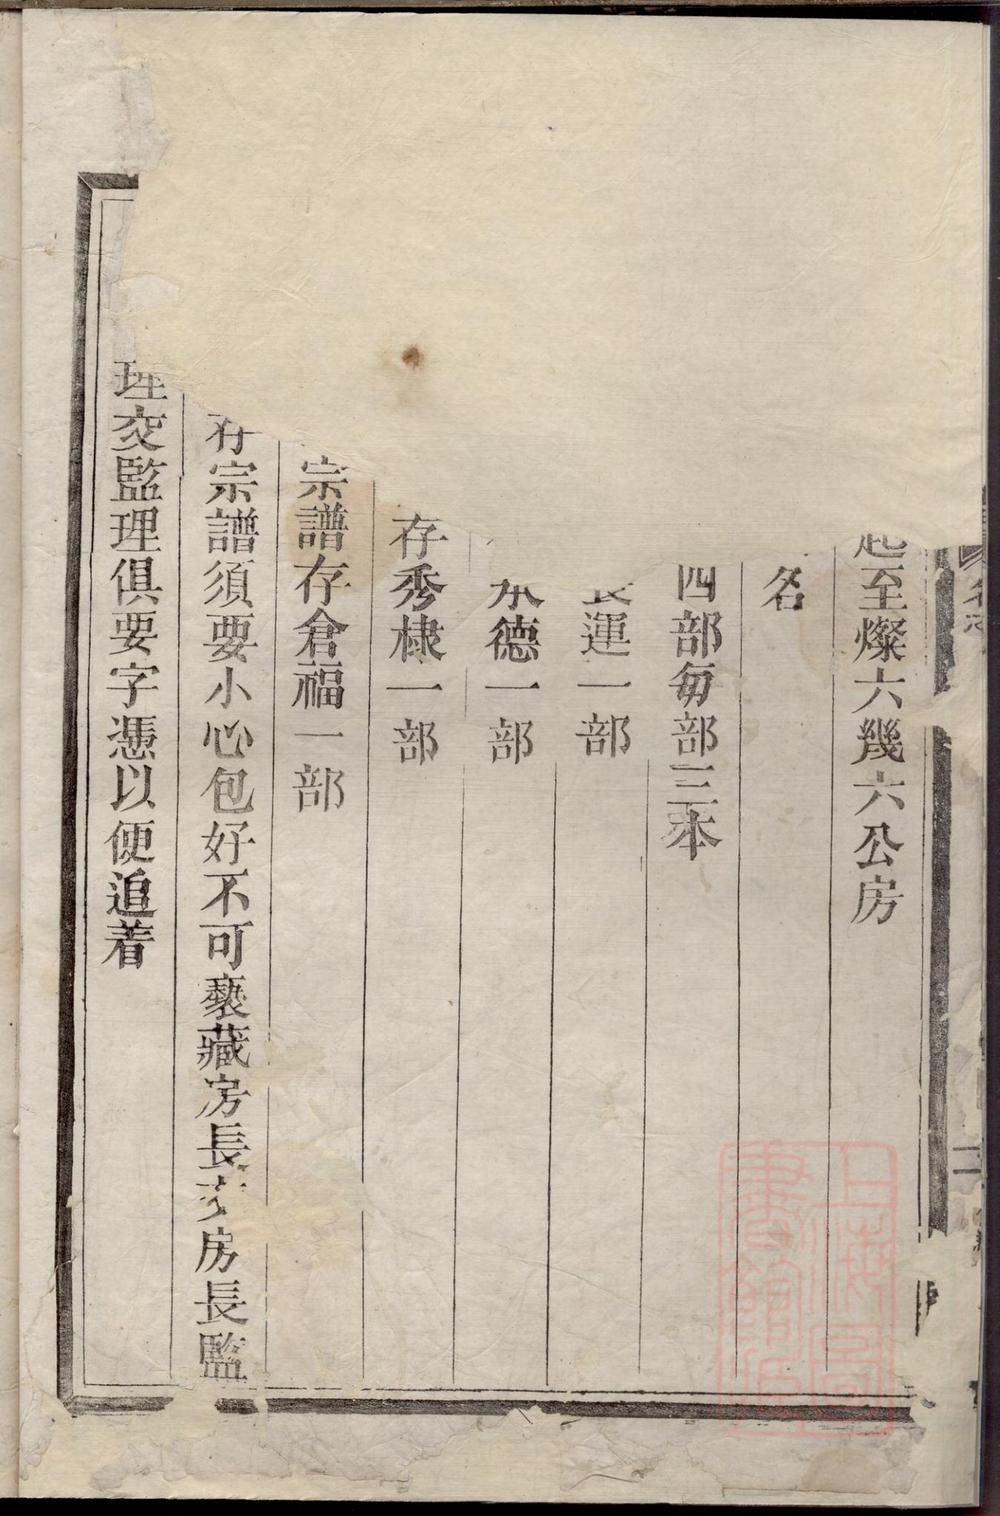 起至燦六幾六公房
名
四部每部三本
長運一部
德一部
存秀棣一部
宗譜存倉福一部
存宗譜須要小心包好不可褻藏房長交房長監
理交監理俱要字憑以便追着
二
上海圖書館藏